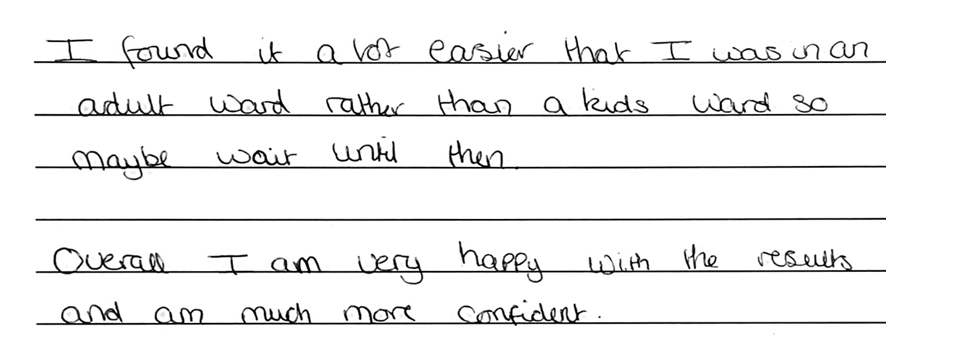 I found it a lot easier that I was in an
adult ward rather than a kids ward so
maybe wait until then.
Overall I am very happy with the results
and am much more confident.